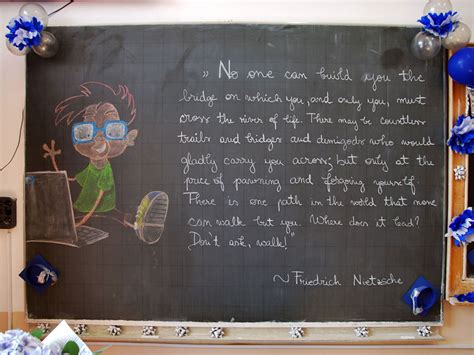 „ No one can build you the
bridge on which you, and only you, must
cross the river of life. There may be countless
trails and bridges and demigods who would
gladly carry you across; but only at the
price of pawning and forgoing yourself.
There is one path in the world that none
can walk but you. Where does it lead?
Don't ask, walk!"
~ Friedrich Nietzsche